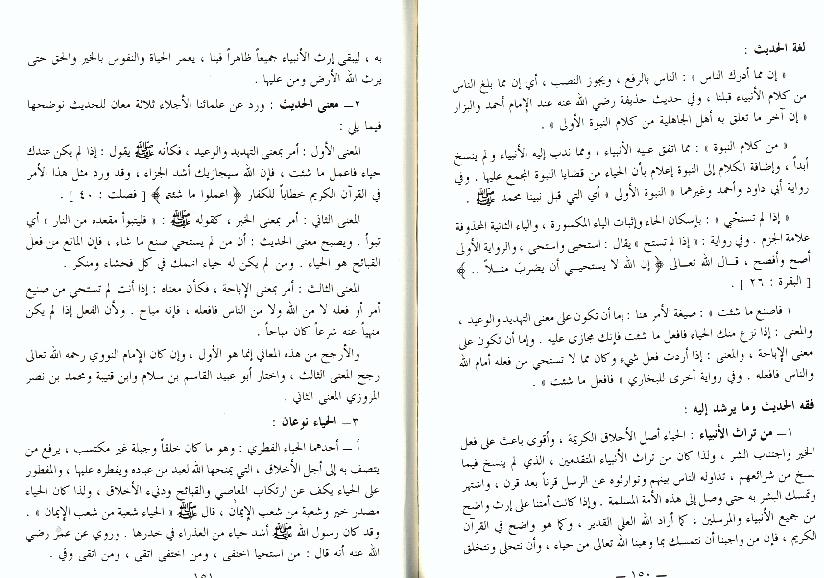 لغة الحديث :
« إن مما أدرك الناس » : الناس بالرفع ، ويجوز النصب ، أي إن مما بلغ الناس
من كلام الأنبياء قبلنا ، وفي حديث حذيفة رضي الله عنه عند الإمام أحمد والبزار
« إن آخر ما تعلق به أهل الجاهلية من كلام النبوة الأولى » .
« من كلام النبوة » : مما اتفق عليه الأنبياء ، ومما ندب إليه الأنبياء ولم ينسخ
أبداً ، وإضافة الكلام إلى النبوة إعلام بأن الحياء من قضايا النبوة المجمع عليها . وفي
رواية أبي داود وأحمد وغيرهما « النبوة الأولى » أي التي قبل نبينا محمد ﷺ .
« إذا لم تستحْيِ » : بإسكان الحاء وإثبات الياء المكسورة ، والياء الثانية المحذوفة
علامة الجزم . وفي رواية : « إذا لم تستح » يقال : استحيى واستحى ، والرواية الأولى
أصح وأفصح ، قال الله تعالى ﴿ إن الله لا يستحيي أن يضرب مثلاً .. ﴾
[ البقرة : ٢٦ ] .
« فاصنع ما شئت » : صيغة لأمر هنا : إما أن تكون على معنى التهديد والوعيد ،
والمعنى : إذا نزع منك الحياء فافعل ما شئت فإنك مجازى عليه . وإما أن تكون على
معنى الإباحة ، والمعنى : إذا أردت فعل شيء وكان مما لا تستحي من فعله أمام الله
والناس فافعله . وفي رواية أخرى للبخاري « فافعل ما شئت » .
فقه الحديث وما يرشد إليه :
١ـ من تراث الأنبياء : الحياء أصل الأخلاق الكريمة ، وأقوى باعث على فعل
الخير واجتناب الشر ، ولذا كان من تراث الأنبياء المتقدمين ، الذي لم ينسخ فيما
نسخ من شرائعهم ، تداوله الناس بينهم وتوارثوه عن الرسل قرناً بعد قرن ، واشتهر
وتمسك البشر به حتى وصل إلى هذه الأمة المسلمة . وإذا كانت أمتنا على إرث واضح
من جميع الأنبياء والمرسلين ، كما أراد الله العلي القدير ، وكما هو واضح في القرآن
الكريم ، فإن من واجبنا أن نتمسك بما وهبنا الله تعالى من حياء ، وأن نتحلى ونتخلق
ـ ١٥٠ ـ
به ، ليبقى إرث الأنبياء جميعاً ظاهراً فينا ، يعمر الحياة والنفوس بالخير والحق حتى
يرث الله الأرض ومن عليها .
٢ـ معنى الحديث : ورد عن علمائنا الأجلاء ثلاثة معان للحديث نوضحها
فيما يلي :
المعنى الأول : أمر بمعنى التهديد والوعيد ، فكأنه ﷺ يقول : إذا لم يكن عندك
حياء فاعمل ما شئت ، فإن الله سيجازيك أشد الجزاء ، وقد ورد مثل هذا لأمر
في القرآن الكريم خطاباً للكفار ﴿ اعملوا ما شئتم ﴾ [ فصلت : ٤٠ ] .
المعنى الثاني : أمر بمعنى الخبر ، كقوله ﷺ : « فليتبوأ مقعده من النار » أي
تبوأ . ويصبح معنى الحديث : أن من لم يستحي صنع ما شاء ، فإن المانع من فعل
القبائح هو الحياء . ومن لم يكن له حياء انهمك في كل فحشاء ومنكر .
المعنى الثالث : أمر بمعنى الإباحة ، فكأن معناه : إذا أنت لم تستحي من صنيع
أمر أو فعله لا من الله ولا من الناس فافعله ، فإنه مباح . ولأن الفعل إذا لم يكن
منهياً عنه شرعاً كان مباحاً .
والأرجح من هذه المعاني إنما هو الأول ، وإن كان الإمام النووي رحمه الله تعالى
رجح المعنى الثالث ، واختار أبو عبيد القاسم بن سلام وابن قتيبة ومحمد بن نصر
المروزي المعنى الثاني .
٣ـ الحياء نوعان :
أ ـ أحدهما الحياء الفطري : وهو ما كان خلقاً وجبلة غير مكتسب ، يرفع من
يتصف به إلى أجل الأخلاق ، التي يمنحها الله لعبد من عباده ويفطره عليها ، والمفطور
على الحياء يكف عن ارتكاب المعاصي والقبائح ودنيء الأخلاق ، ولذا كان الحياء
مصدر خير وشعبة من شعب الإيمان ، قال ﷺ « الحياء شعبة من شعب الإيمان » .
وقد كان رسول الله ﷺ أشد حياء من العذراء في خدرها . وروي عن عمر رضي
الله عنه أنه قال : من استحيا اختفى ، ومن اختفى اتقى ، ومن اتقى وقي .
١٥١